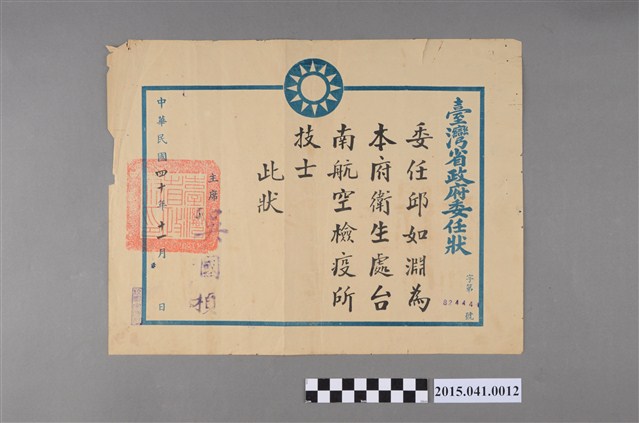 臺灣省政府委任狀
字第
號
委任邱如淵為
本府衛生處台
南航空檢疫所
技士
此狀
主席
吳國楨
中華民國四十年十一月 日
2015.041.0012